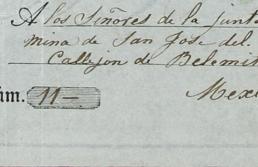 A los Señores de la junta
mina de San Jose del.
Callejon de Belemit
úm. 11—
Mex